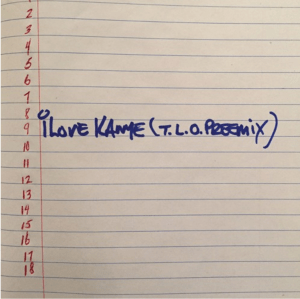 1
2
3
4
5
6
7
8
9 iLOVE KANYE (T.L.O. PREEMIX)
10
11
12
13
14
15
16
17
18